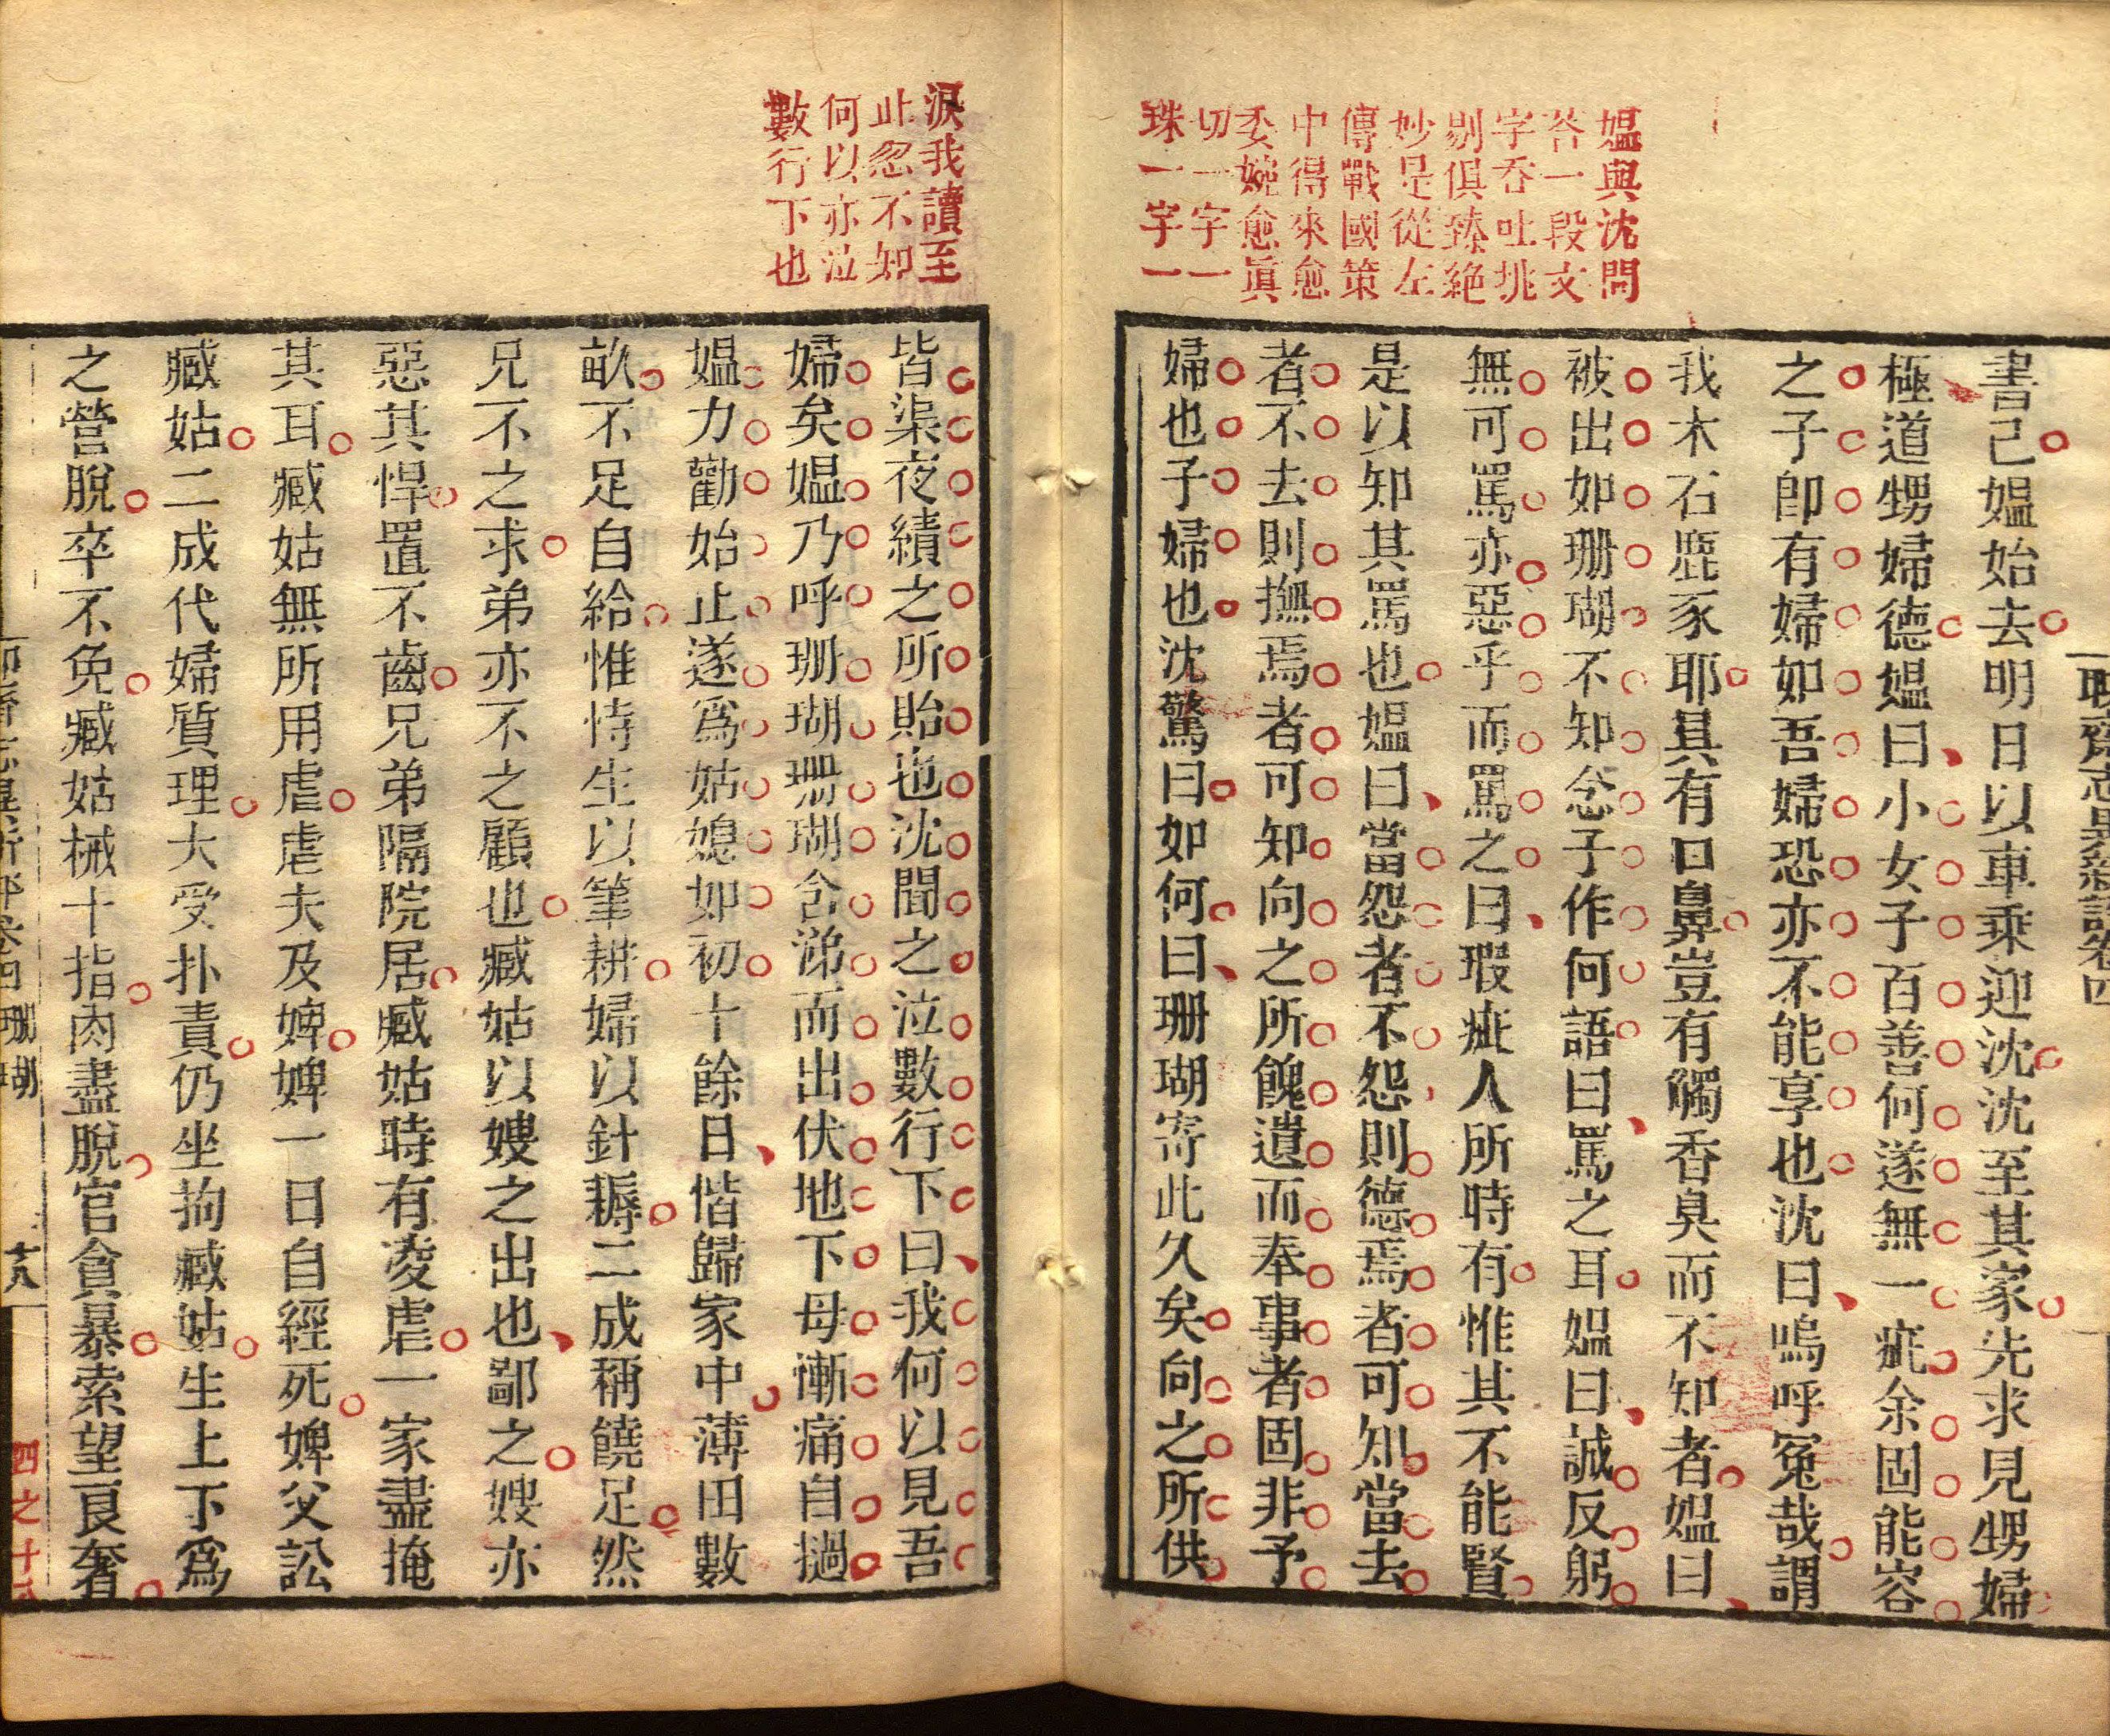 聊齋志異新評卷四
媼與沈問
答一段文
字吞吐挑
剔俱臻絶
妙是從左
傳戰國策
中得來愈
委婉愈眞
切一字一
珠一字一
書己媼始去明日以車乘迎沈沈至其家先求見甥婦
極道甥婦德媼曰小女子百善何遂無一疵余固能容
之子卽有婦如吾婦恐亦不能享也沈曰嗚呼冤哉謂
我木石鹿豕耶其有口鼻豈有觸香臭而不知者媼曰
被出如珊瑚不知念子作何語曰罵之耳媼曰誠反躬
無可罵亦惡乎而罵之曰瑕疵人所時有惟其不能賢
是以知其罵也媼曰當怨者不怨則德焉者可知當去
者不去則撫焉者可知向之所餽遺而奉事者固非予
婦也子婦也沈驚曰如何曰珊瑚寄此久矣向之所供
淚我讀至
此忽不知
何以亦泣
數行下也
皆渠夜績之所貽也沈聞之泣數行下曰我何以見吾
婦矣媼乃呼珊瑚珊瑚含涕而出伏地下母慚痛自撾
媼力勸始止遂爲姑媳如初十餘日偕歸家中薄田數
畝不足自給惟恃生以筆耕婦以針耨二成稱饒足然
兄不之求弟亦不之顧也臧姑以嫂之出也鄙之嫂亦
惡其悍置不齒兄弟隔院居臧姑時有凌虐一家盡掩
其耳臧姑無所用虐虐夫及婢婢一日自經死婢父訟
臧姑二成代婦質理大受扑責仍坐拘臧姑生上下爲
之營脫卒不免臧姑械十指肉盡脫官貪暴索望良奢
聊齋志異新評卷四 珊瑚 十八
四之十八